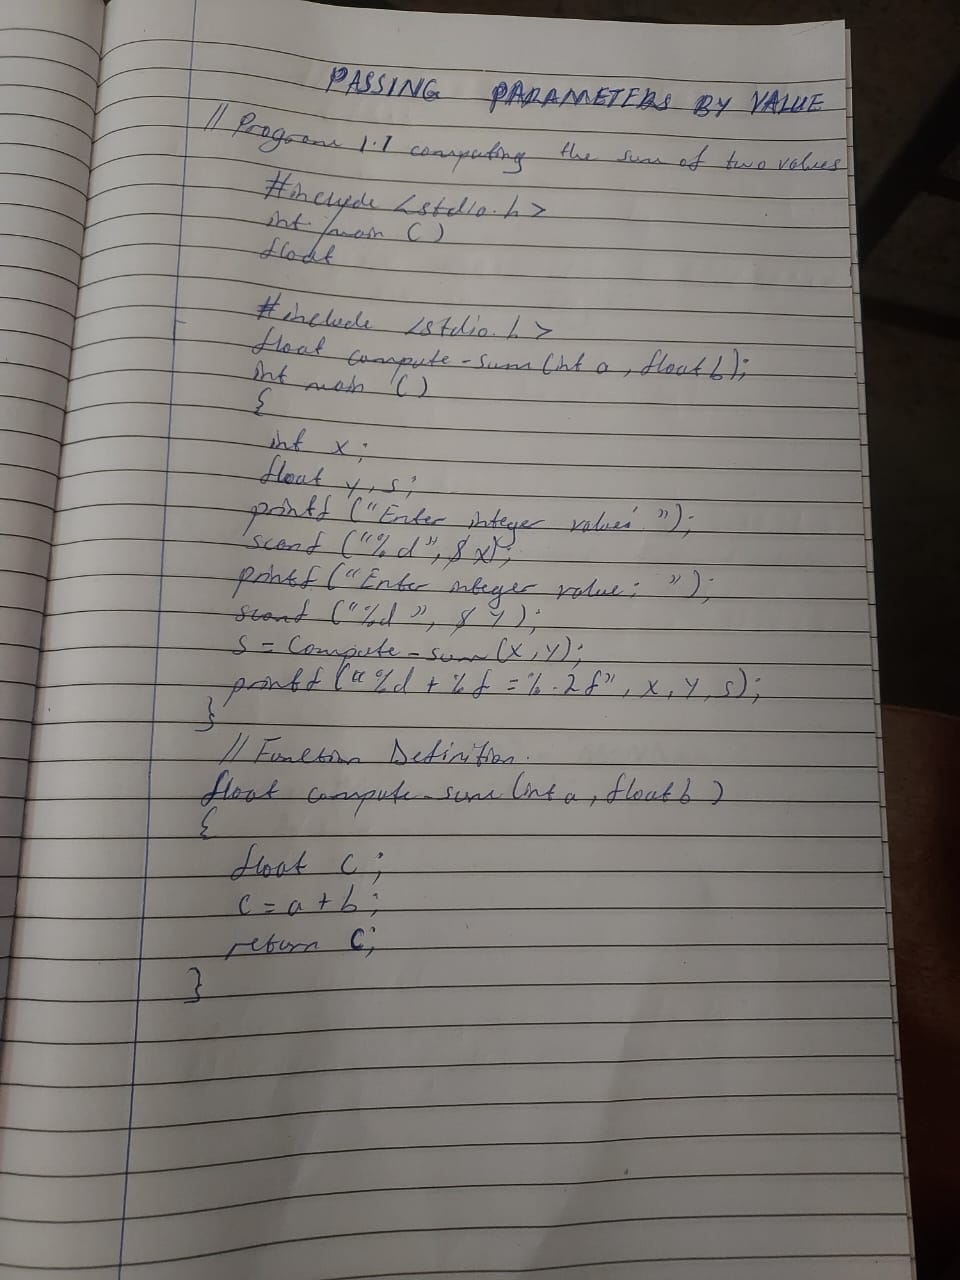 PASSING PARAMETERS BY VALUE
// Program 1.1 computing the sum of two values
#include <stdio.h>
int main ()
float
#include <stdio.h>
float compute-sum (int a, float b);
int main ()
{
int x;
float y, s;
printf ("Enter integer values ");
scanf ("%d", &x);
printf ("Enter integer value: ");
scanf ("%d", &y);
s = Compute-sum (x, y);
printf ("%d + %f = %.2f", x, y, s);
}
// Function Definition.
float compute-sum (int a, float b)
{
float c;
c = a + b;
return c;
}